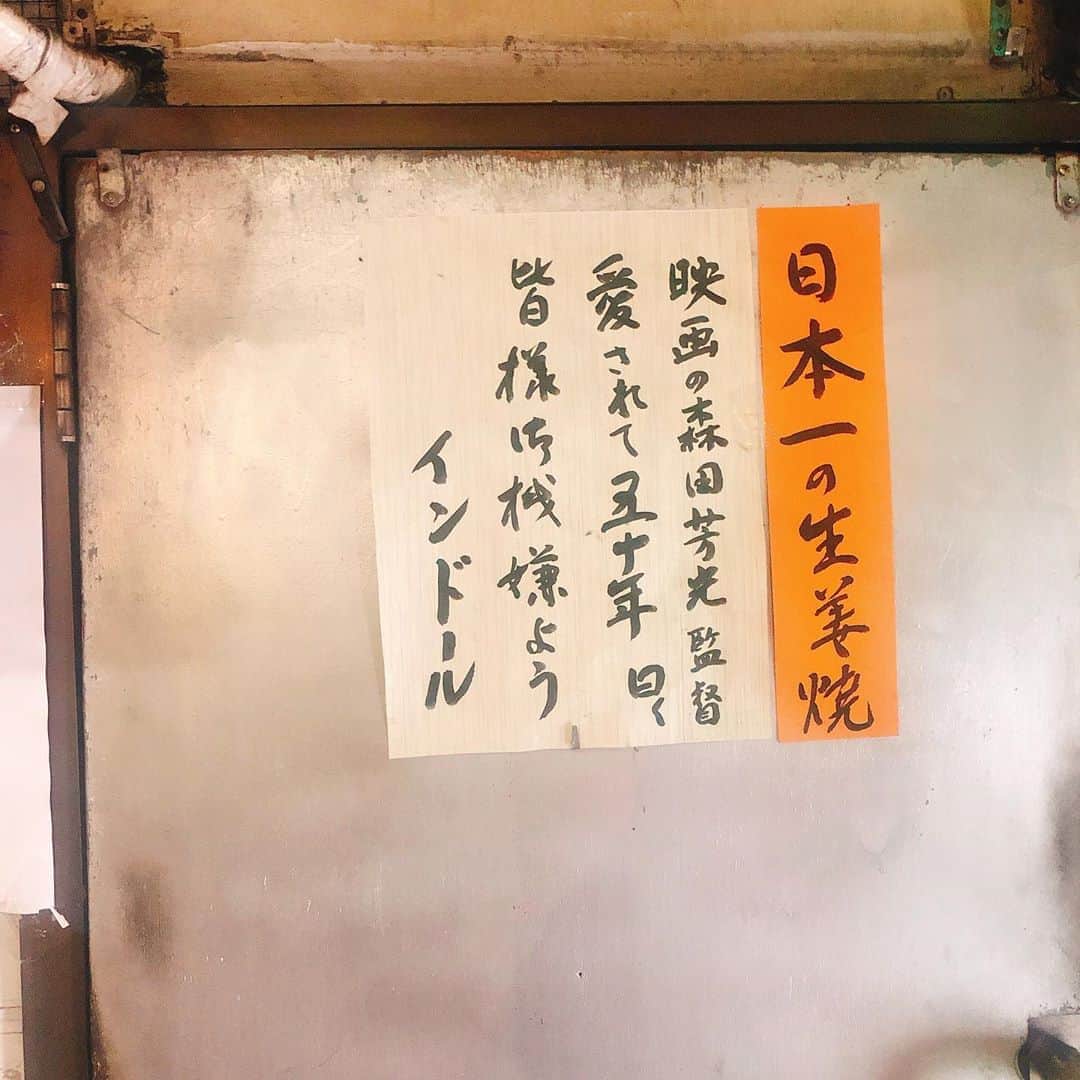 日本一の生姜焼
映画の森田芳光監督
愛されて五十年 曰く
皆様御機嫌よう
インドール